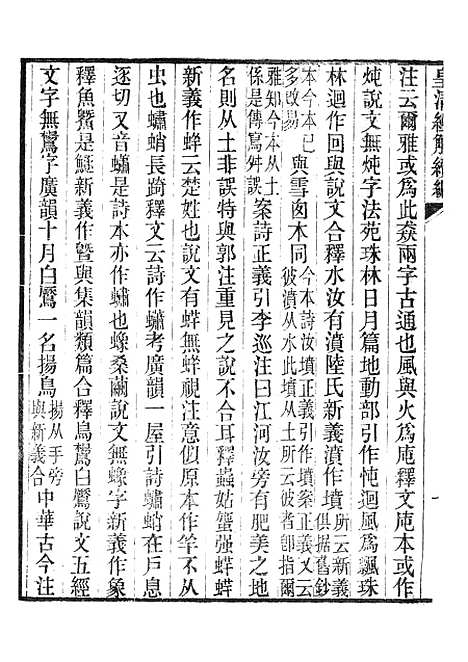 皇清經解續編
注云爾雅或為此猋兩字古通也風與火為庉釋文庉本或作
炖說文無炖字法苑珠林日月篇地動部引作忳迴風為飄珠
林迴作回與說文合釋水汝有濆陸氏新義濆作墳所云新義俱據舊鈔
本今本已多改易與雪囱木同今本詩汝墳正義引作墳案正義又云彼濆從水此墳從土所云彼者即指爾
雅知今本从土係是傳寫舛誤案詩正義引李巡注曰江河汝旁有肥美之地
名則从土非誤特與郭注重見之說不合耳釋蟲姑䗐强蛘
新義作蛘云楚姓也說文有蛘無蛘視注意似原本作竿不从
虫也蠨蛸長踦釋文云詩作蠨考廣韻一屋引詩蠨蛸在戶息
逐切又音蠨是詩本亦作蠨也蟓桑繭說文無蟓字新義作象
釋魚鱀是鱁新義作暨與集韻類篇合釋鳥鸉白鷢說文五經
文字無鸉字廣韻十月白鷢一名揚鳥揚从手旁與新義合中華古今注